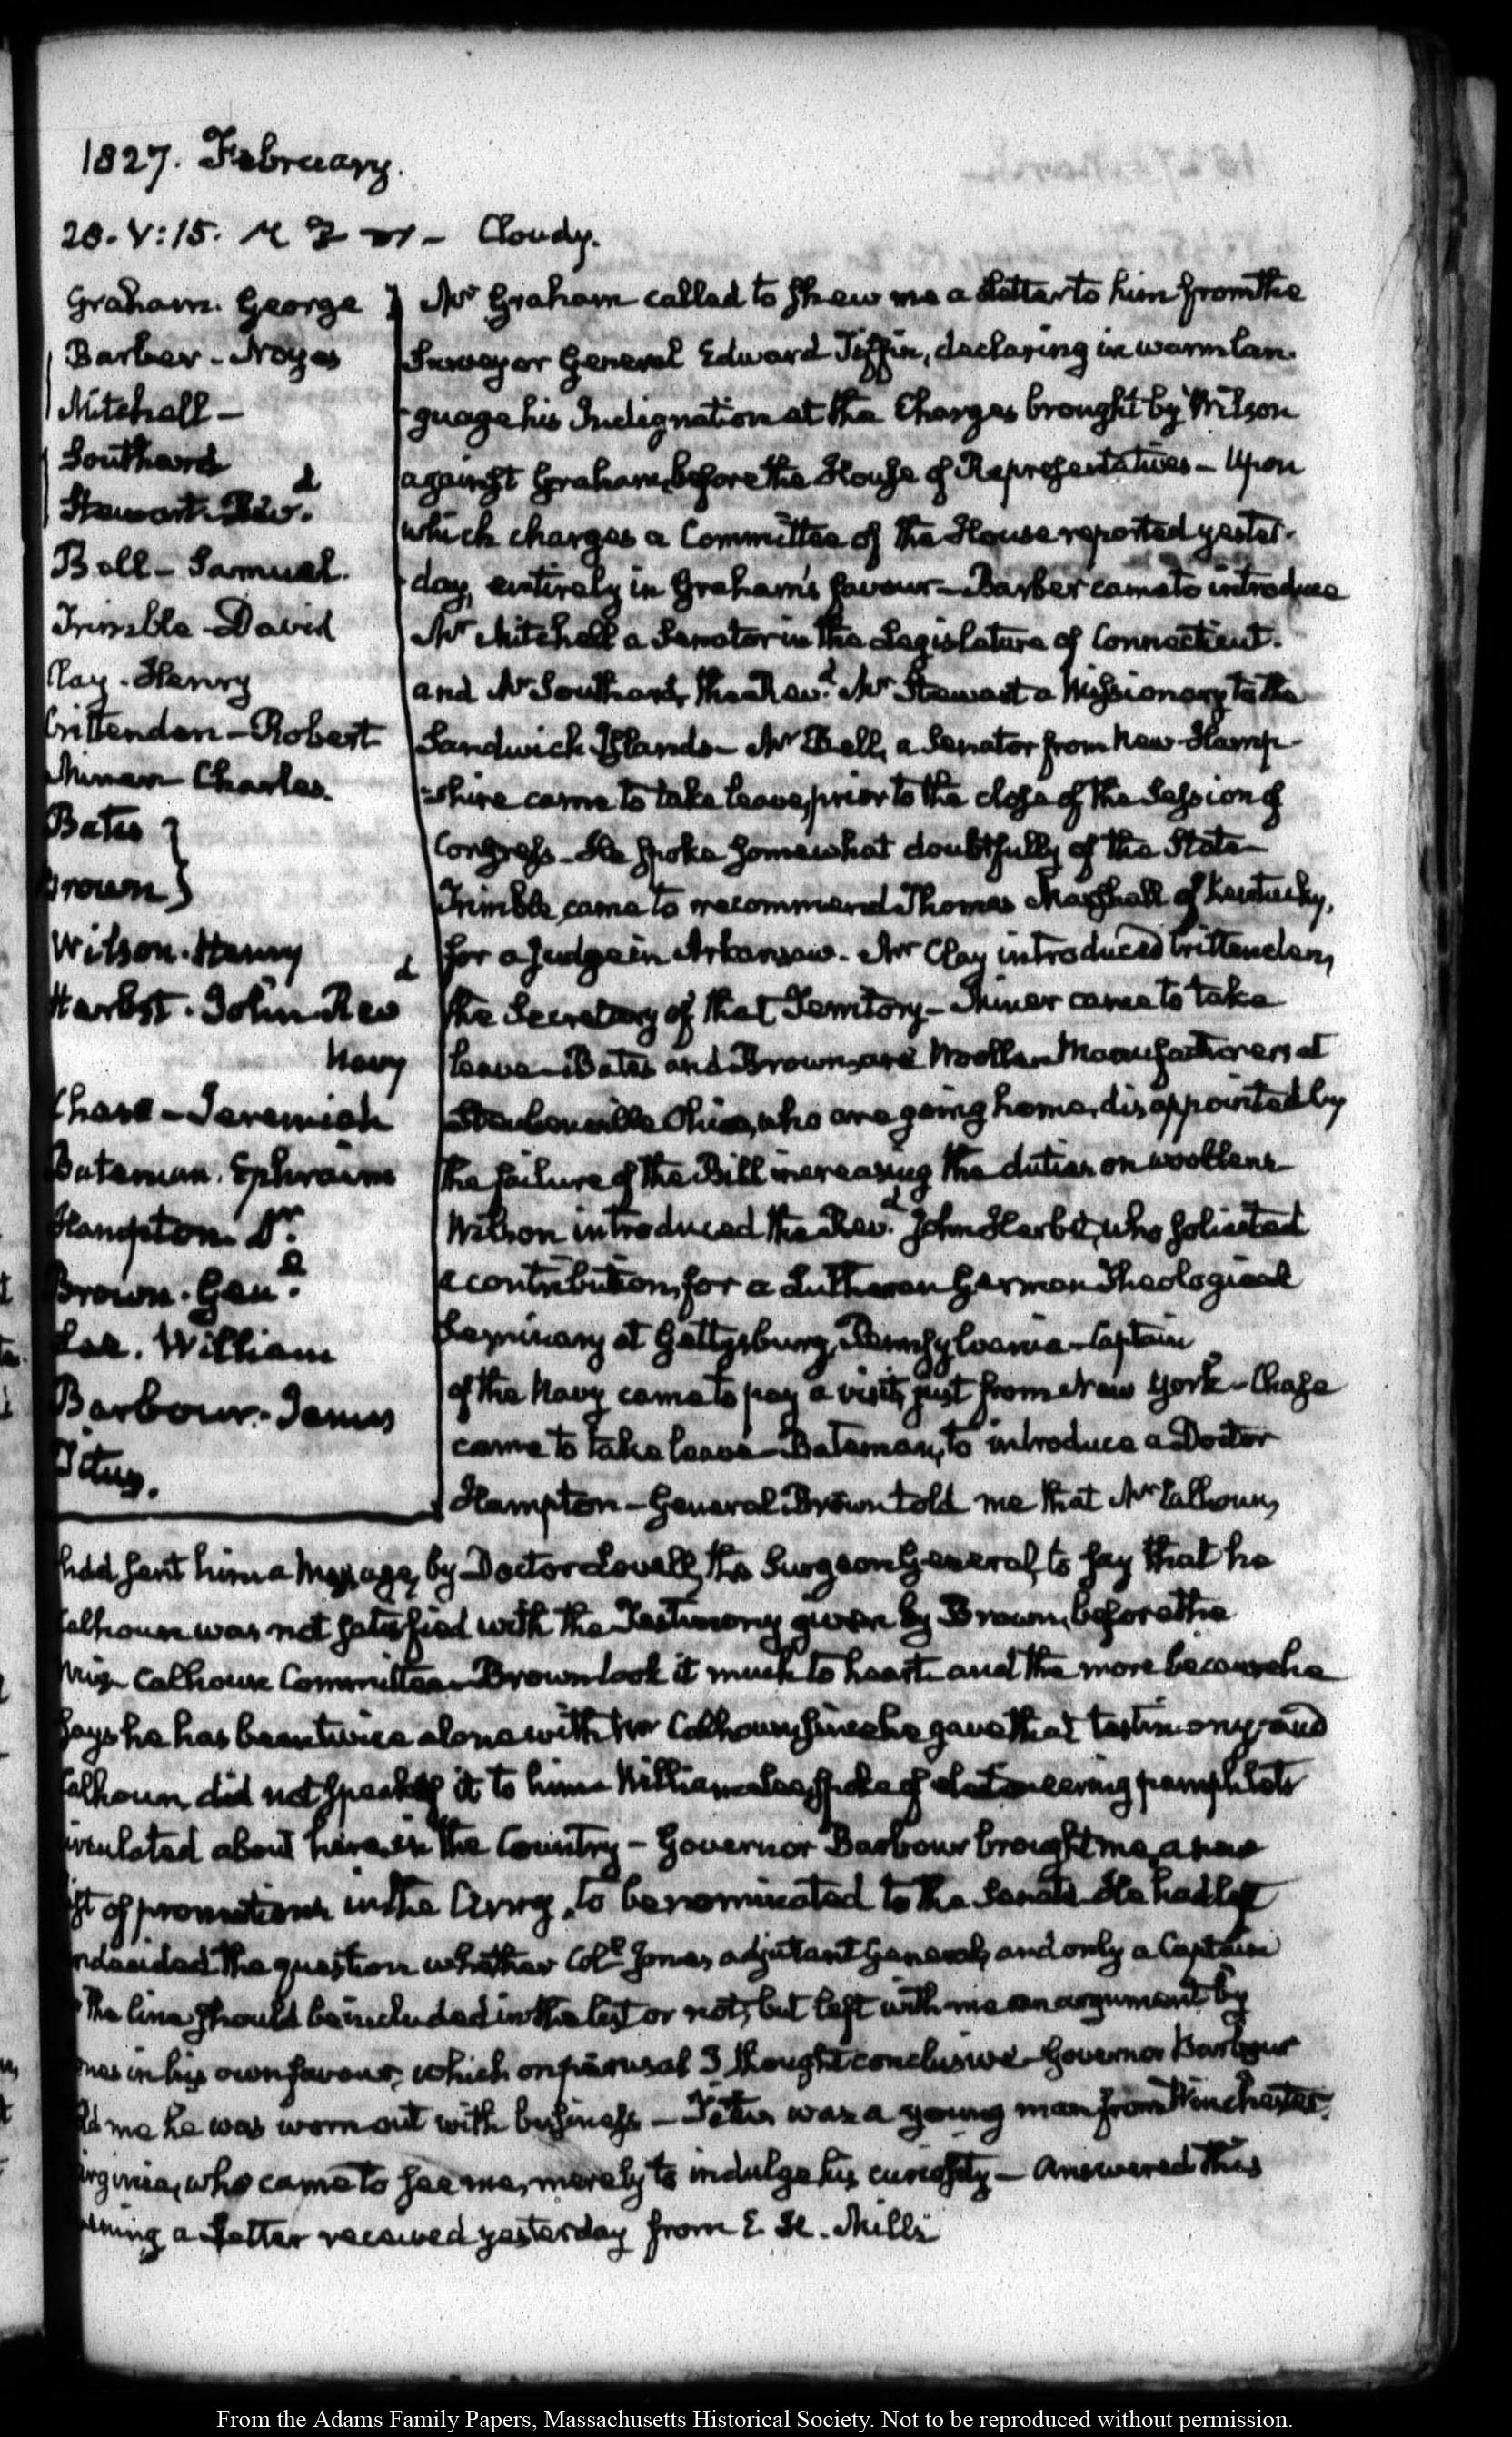 1827. February.
28. V:15. Cloudy.
Graham. George
Barber - Noyes
Mitchell -
Southard
Stewart Revd.
Bell - Samuel.
Trimble - David
Clay - Henry
Crittenden - Robert
Miner Charles.
Bates
Brown
Wilson. Henry
Herbst. John Revd
Navy
Chase - Jeremiah
Bateman. Ephraim
Hampton Dr.
Brown. Genl.
Lee. William
Barbour. James
Titus.
Mr Graham called to shew me a Letter to him from the
Surveyor General Edward Tiffin, declaring in warm lan-
guage his Indignation at the Charges brought by Wilson
against Graham, before the House of Representatives - Upon
which charges a Committee of the House reported yester-
day, entirely in Graham's favour - Barber came to introduce
Mr Mitchell a Senator in the Legislature of Connecticut.
and Mr Southard, the Revd. Mr Stewart a Missionary to the
Sandwich Islands - Mr Bell, a Senator from New-Hamp-
-shire came to take leave, prior to the close of the Session of
Congress - He spoke somewhat doubtfully of the State -
Trimble, came to recommend Thomas Marshall of Kentucky,
for a Judge in Arkansaw. Mr Clay introduced Crittenden,
the Secretary of that Territory - Miner came to take
leave - Bates and Brown, are Woollen Manufacturers at
Steubenville Ohio, who are going home, disappointed by
the failure of the Bill increasing the duties on woollens -
Wilson introduced the Revd. John Herbst, who solicited
a contribution, for a Lutheran German Theological
Seminary at Gettysburg, Pennsylvania - Captain
of the Navy came to pay a visit, just from New York - Chase
came to take leave - Bateman, to introduce a Doctor
Hampton - General Brown told me that Mr Calhoun,
had sent him a Message, by Doctor Lovell, the Surgeon General, to say that he
Calhoun was not satisfied with the Testimony given by Brown, before the
Mix Calhoun Committee - Brown took it much to heart and the more because he
says he has been twice alone with Mr Calhoun, since he gave that testimony, and
Calhoun did not speak of it to him - William Lee spoke of electioneering pamphlets
circulated about here in the Country - Governor Barbour brought me a new
list of promotions in the Army, to be nominated to the Senate. He had left
undecided the question whether Coll Jones, adjutant General, and only a Captain
the line should be included in the list or not, but left with me an argument by
Jones in his own favour, which on perusal I thought conclusive - Governor Barbour
told me he was worn out with business - Titus was a young man from Winchester,
Virginia, who came to see me, merely to indulge his curiosity - Answered this
evening a Letter received yesterday from E. H. Mills
From the Adams Family Papers, Massachusetts Historical Society. Not to be reproduced without permission.